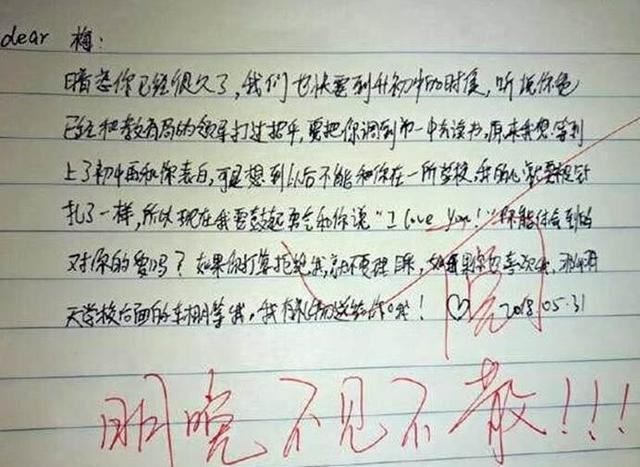 dear 梅:
暗恋你已经很久了,我们也快要到升初中的时候,听说你爸
已经和教育局的领导打过招乎,要把你调到市一中去读书,原来我想等到
上了初中再和你表白,可是想到以后不能和你在一所学校,我的心就要被针
扎了一样,所以现在我要鼓起勇气和你说“I love you!”你能体会到的
对你的爱吗?如果你打算拒绝我,就不要理睬,如果你也喜欢我,那明
天学校后面的车棚等我,我有礼物送给你哦!♡ 2018.05.31
阅
明晚不见不散!!!